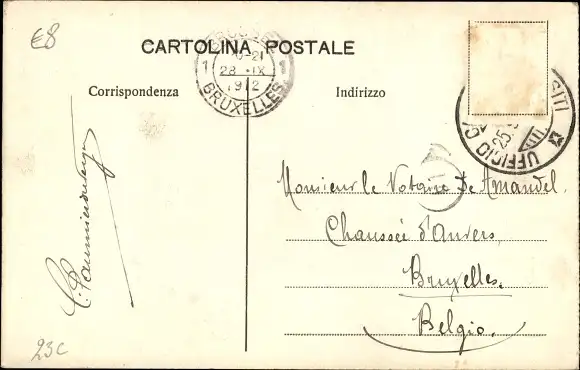 €8
CARTOLINA POSTALE
1 28 IX 1
1912
BRUXELLES
Corrispondenza
Indirizzo
UFFICIO
25
Monsieur le Notaire De Amandel.
Chaussée d'Anvers,
Bruxelles.
Belgio.
23c